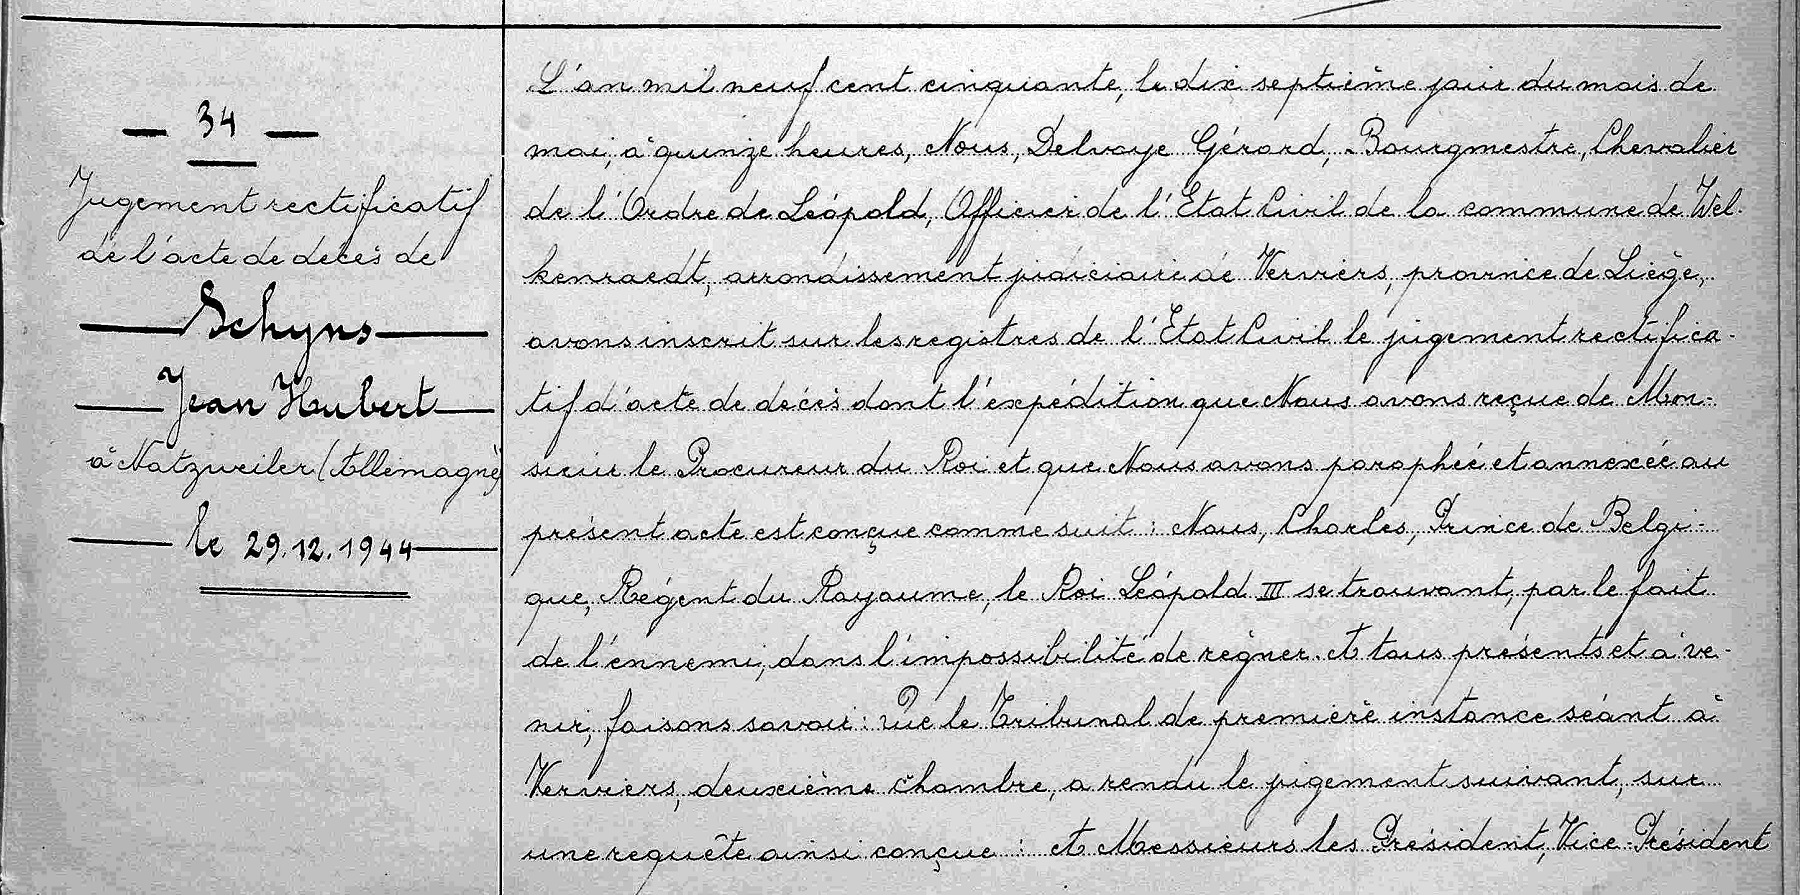 — 34 —
Jugement rectificatif
de l'acte de décès de
Schyns
Jean Hubert
à Natzweiler (Allemagne)
le 29.12.1944
L'an mil neuf cent cinquante, le dix septième jour du mois de
mai, à quinze heures, Nous, Delvoye Gérard, Bourgmestre, Chevalier
de l'Ordre de Léopold, Officier de l'Etat Civil de la commune de Wel-
kenraedt, arrondissement judiciaire de Verviers, province de Liège,
avons inscrit sur les registres de l'Etat Civil le jugement rectifica-
tif d'acte de décès dont l'expédition que Nous avons reçue de Mon-
sieur le Procureur du Roi et que Nous avons paraphée et annexée au
présent acte est conçue comme suit : Nous, Charles, Prince de Belgi-
que, Régent du Royaume, le Roi Léopold III se trouvant, par le fait
de l'ennemi, dans l'impossibilité de règner. A tous présents et à ve-
nir, faisons savoir : Que le Tribunal de première instance séant à
Verviers, deuxième chambre, a rendu le jugement suivant, sur
une requête ainsi conçue : A Messieurs les Président, Vice-Président